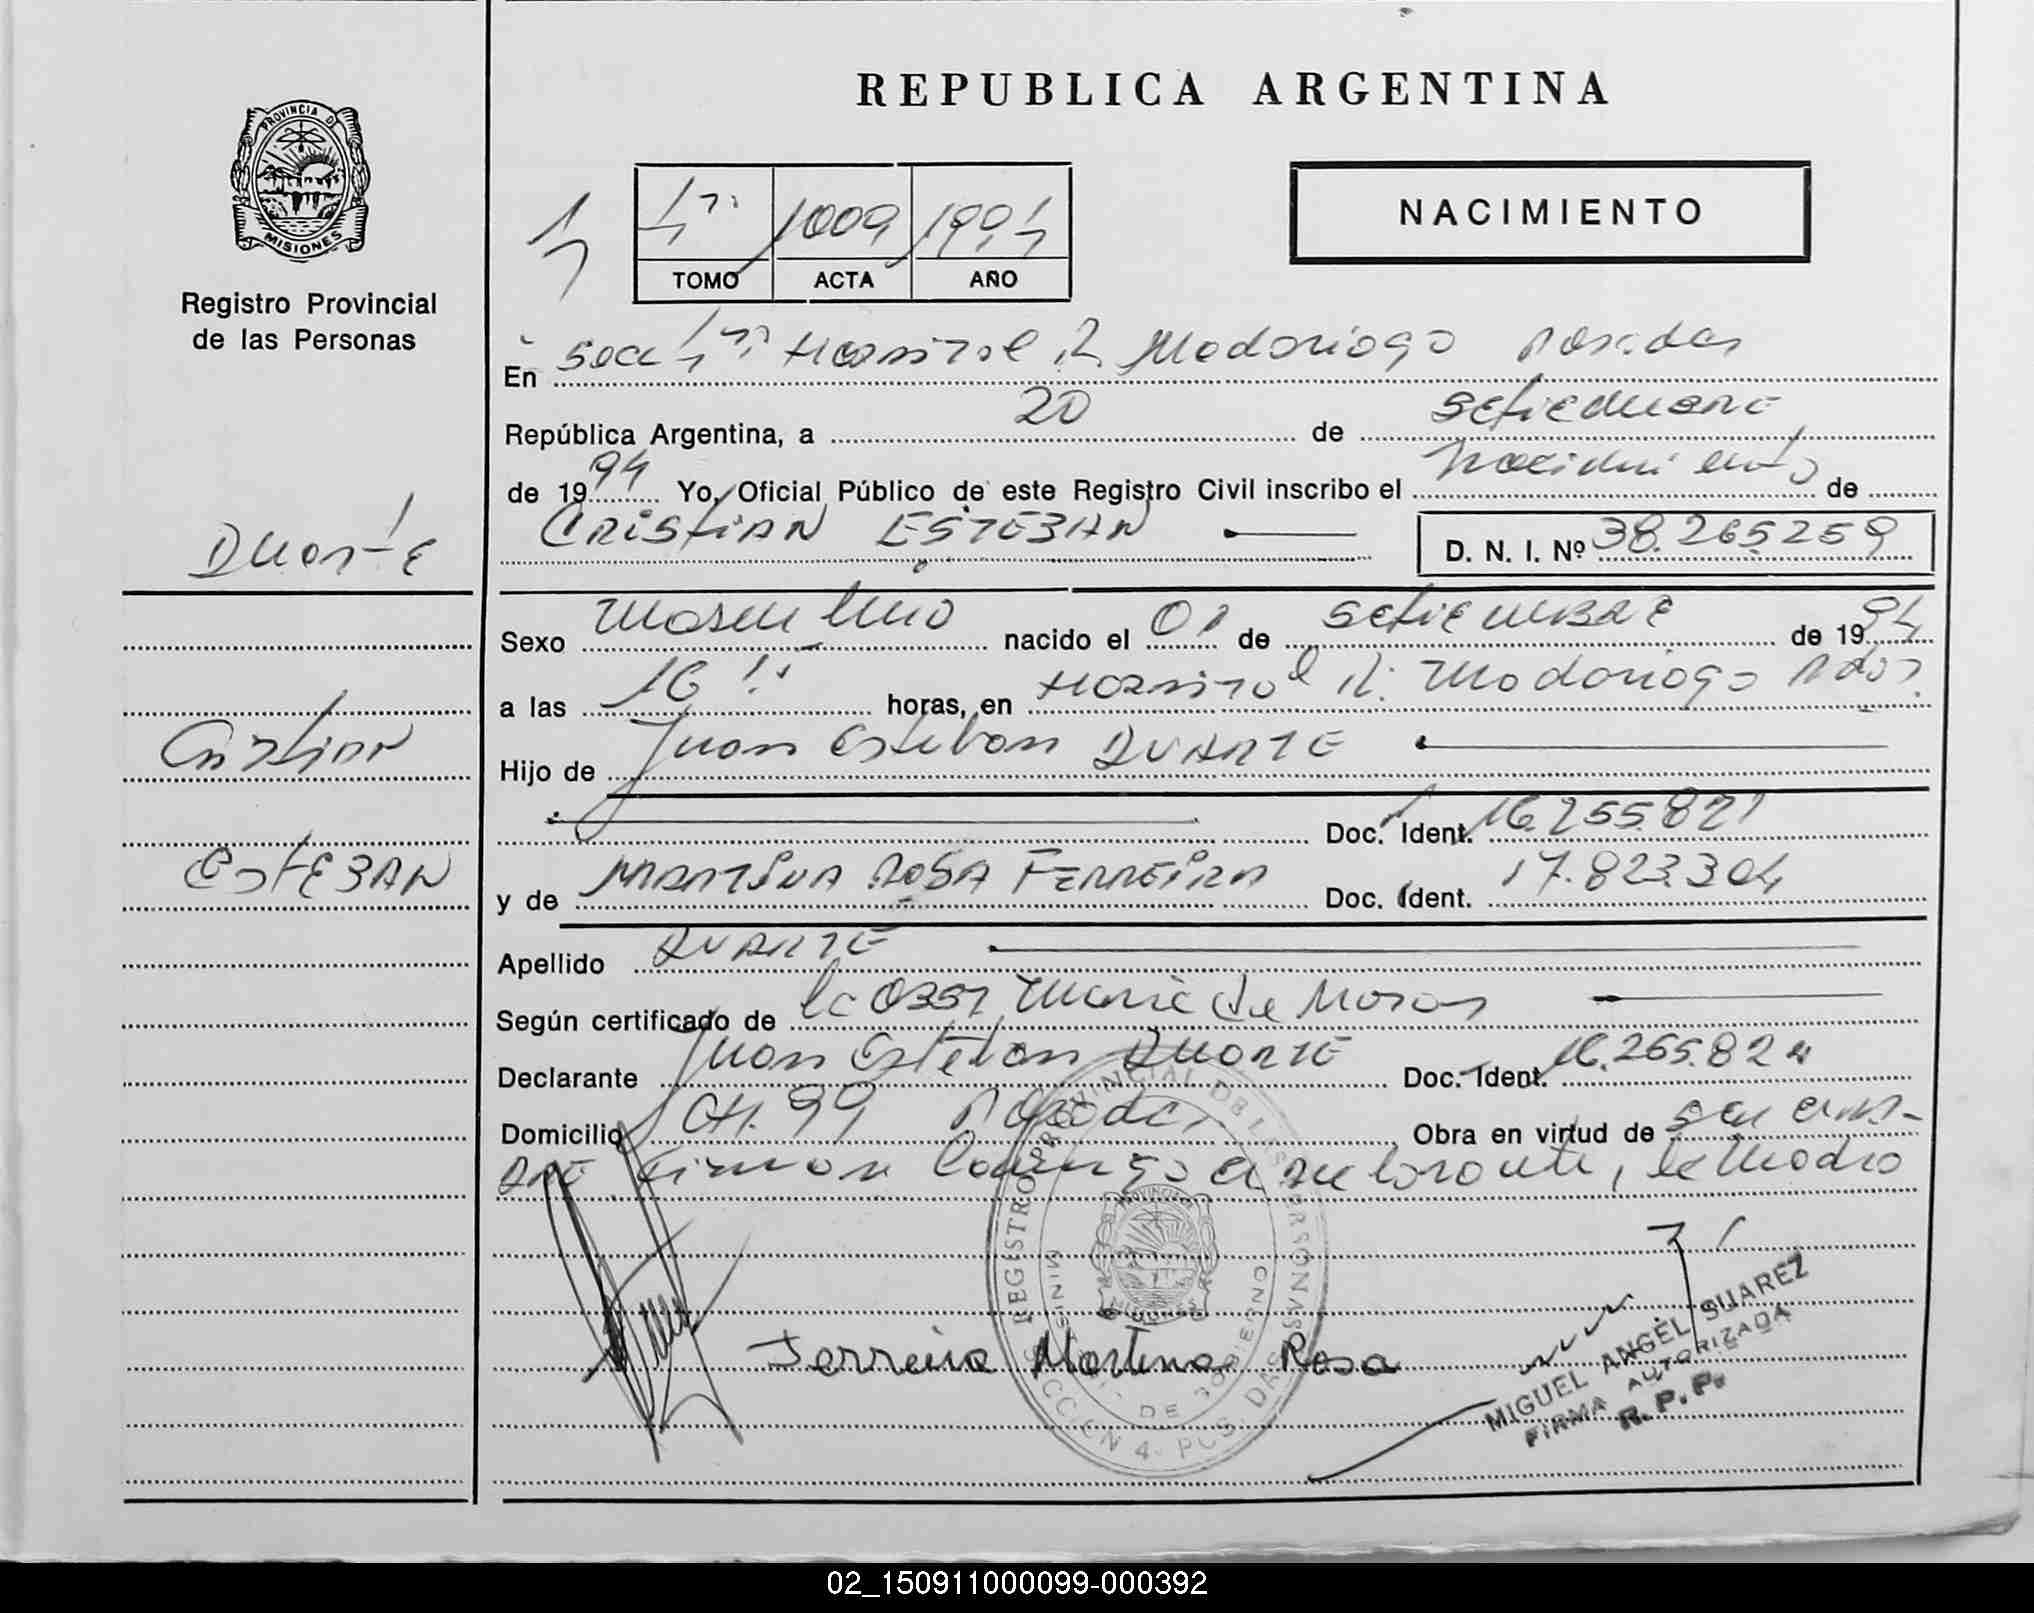 REPUBLICA ARGENTINA
PROVINCIA DE
MISIONES
Registro Provincial
de las Personas
NACIMIENTO
4º 1009 1994
TOMO ACTA AÑO
En Secc 4ª Hospital R. Madariaga Posadas
República Argentina, a 20 de Setiembre
de 1994 Yo, Oficial Público de este Registro Civil inscribo el nacimiento de
CRISTIAN ESTEBAN D. N. I. Nº 38.265.259
Duarte
Sexo Masculino nacido el 01 de Setiembre de 1994
a las 16 horas, en Hospital R. Madariaga Pdas.
Cristian
Hijo de Juan Esteban DUARTE
Doc. Ident. 16.255.821
Esteban
y de MARTINA ROSA FERREIRA Doc. Ident. 17.823.304
Apellido DUARTE
Según certificado de la Obst Maria de Moran
Declarante Juan Esteban DUARTE Doc. Ident. 16.265.824
Domicilio CH. 99 Posadas Obra en virtud de ser el pa-
dre Firman conmigo el declarante, la Madre
Ferreira Martina Rosa
REGISTRO PROVINCIAL DE LAS PERSONAS
MINISTERIO DE GOBIERNO
SECCION 4ª PCS. DAS.
MIGUEL ANGEL SUAREZ
FIRMA AUTORIZADA
R.P.P.
02_150911000099-000392